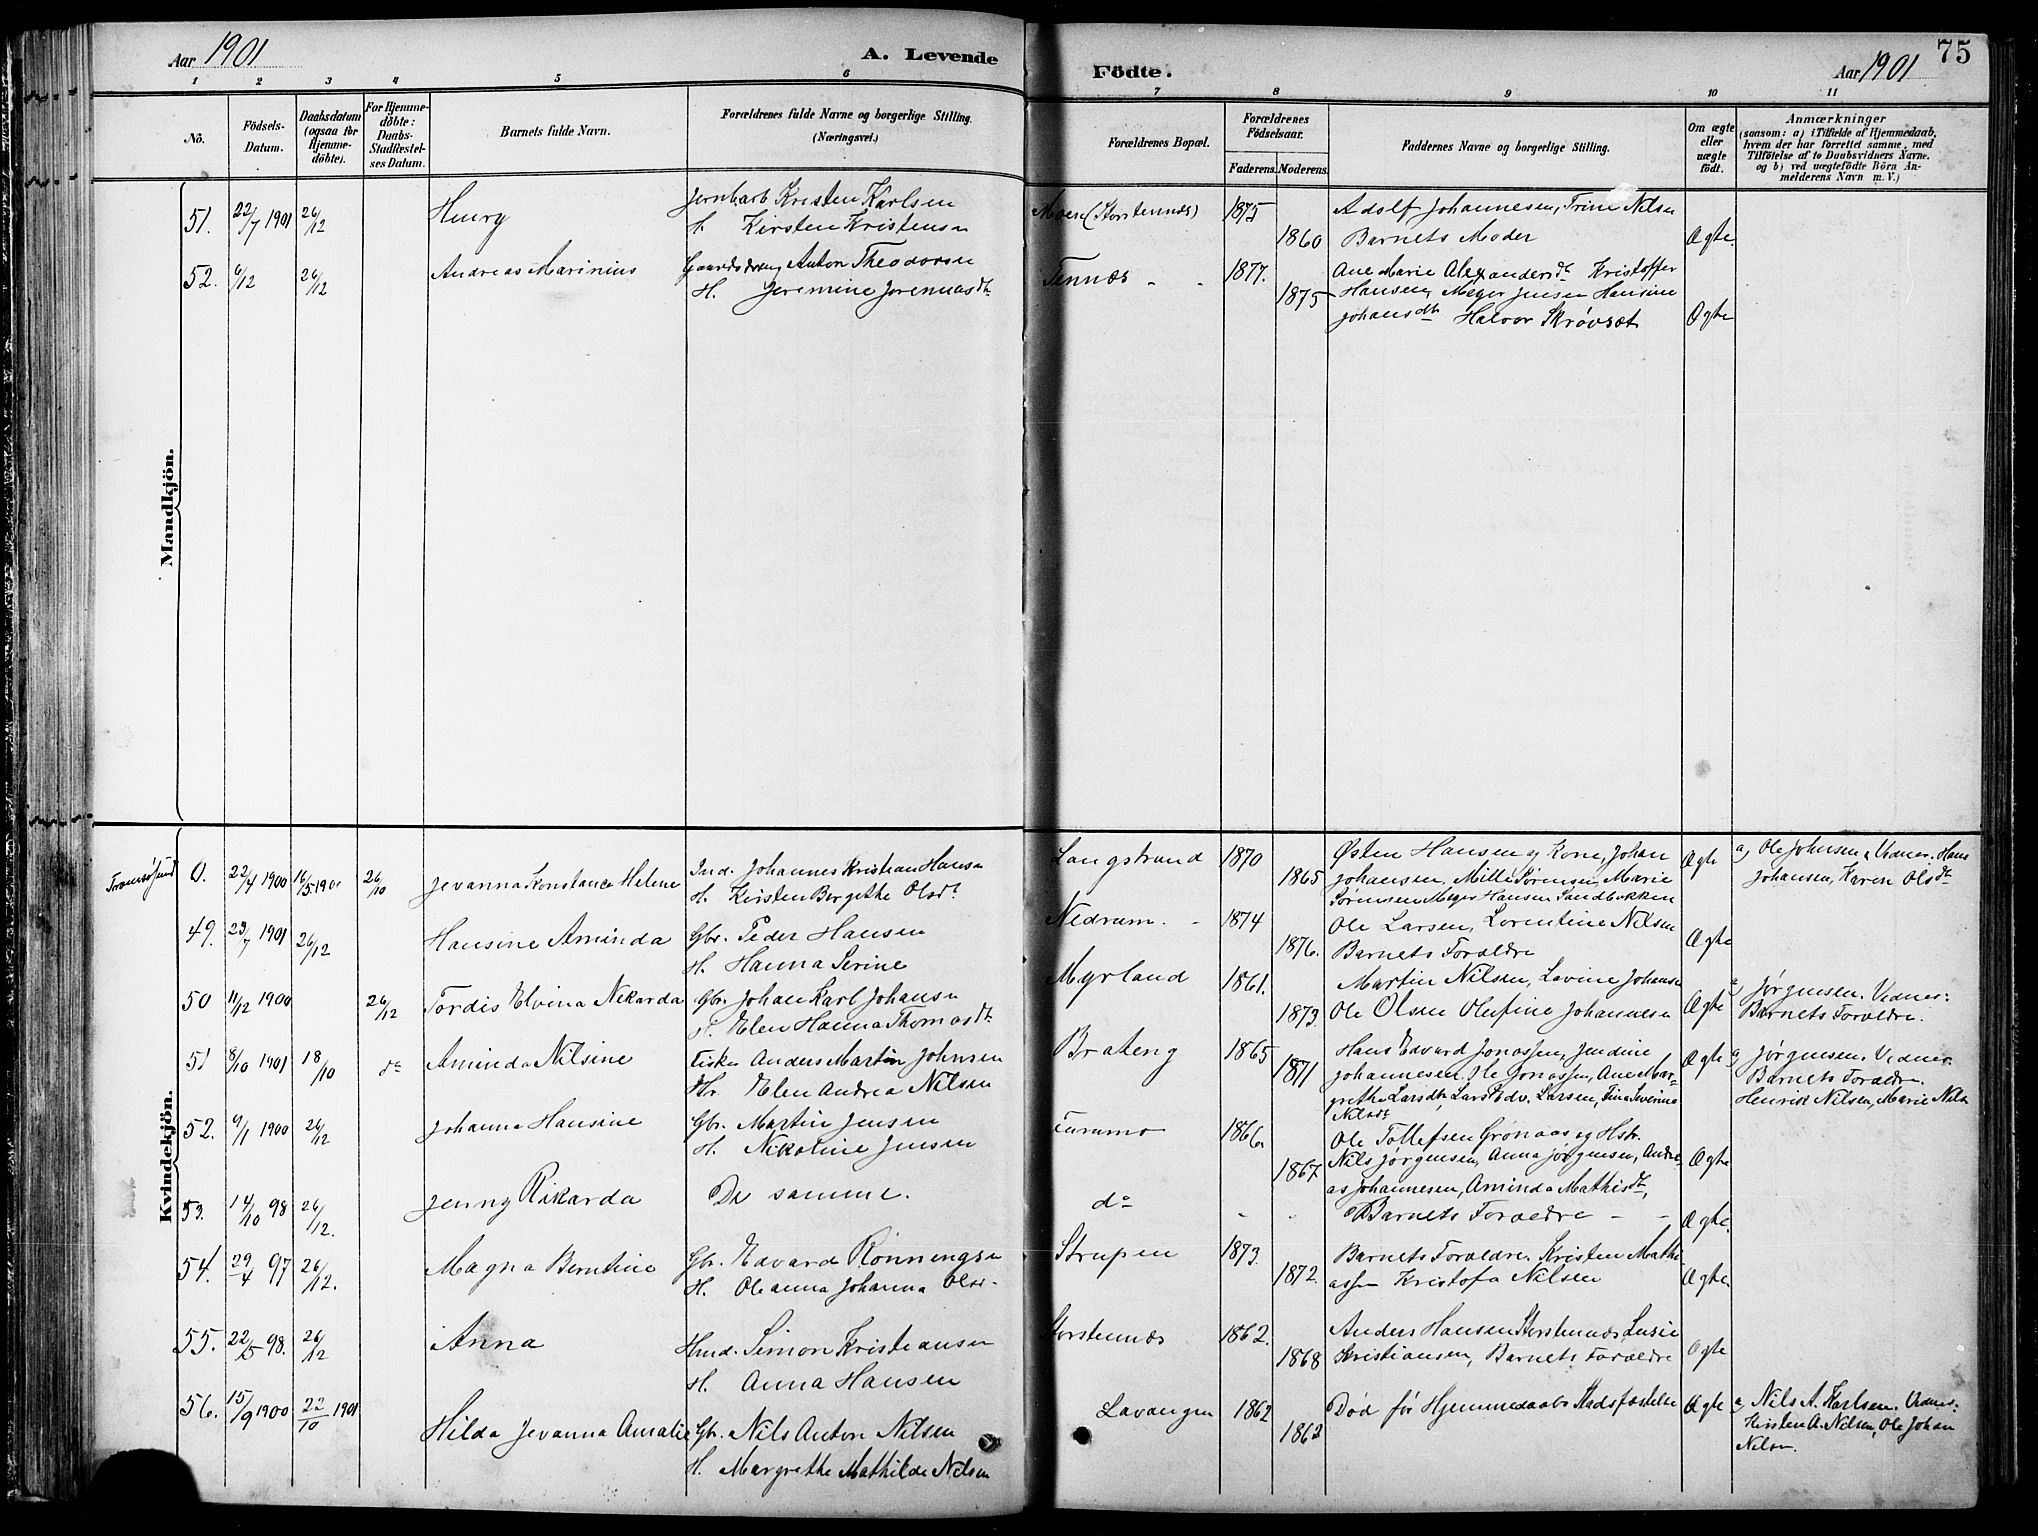 Aar 1901
A. Levende
Födte.
Aar 1901
75
1 2 3 4 5 6 7 8 9 10 11
No.
Födsels-
Datum.
Daabsdatum
(ogsaa for
Hjemme-
döbte).
For Hjemme-
döbte:
Daabs-
Stadfæstel-
ses Datum.
Barnets fulde Navn.
Forældrenes fulde Navne og borgerlige Stilling.
(Næringsvei.)
Forældrenes Bopæl.
Forældrenes
Födselsaar.
Faderens. Moderens.
Faddernes Navne og borgerlige Stilling.
Om ægte
eller
uægte
födt.
Anmærkninger
(saasom: a) i Tilfælde af Hjemmedaab,
hvem der har forrettet samme, med
Tilföielse af to Daabsvidners Navne,
og b) ved uægtefödte Börn An-
melderens Navn m. V.)
Mandkjön.
51. 22/7 1901 26/12 Henry
Jernbarb Kristen Karlsen
H. Kirsten Kristensen
Moen (Storstennæs) 1875 1860
Adolf Johannesen, Trine Nilsen
Barnets Moder
Ægte
52. 6/12 26/12 Andreas Marinius
Gaardsdreng Anton Theodorsen
H. Jeremine Joremiasdt
Tennæs - - 1877. 1875
Ane Marie Alexandersdt Kristoffer
Hansen, Meyer Jensen Hansine
Johansdtr Halvor Skrøvset
Ægte
Kvindekjön.
Tromsøsund
0. 22/4 1900 16/5 1900 26/10 Jevanna Konstance Helene
Ind. Johannes Kristian Hansen
H. Kirsten Bergithe Olsdt.
Langstrand 1870 1865
Østen Hansen og Kone, Johan
Johansen, Milli Sørensen, Marie
Sørensen Meyer Hansen Sandbakken
Ægte
a) Ole Johnsen, Vidner. Hans
Johansen, Karen Olsdt
49. 23/7 1901 26/12 Hansine Aminda
Gbr. Peder Hansen
H. Hanna Serine
Nedrum. - 1874 1876.
Ole Larsen, Lorentine Nilsen
Barnets Forældre
Ægte
50 11/12 1900 26/12 Tordis Elvina Rikarda
Gbr. Johan Karl Johansen
H. Elen Hanna Thomasdt.
Myrland 1861. 1873.
Martin Nilsen, Lovine Johansen
Ole Olsen Olufine Johannesen
Ægte
a) Jørgensen. Vidner:
Barnets Forældre.
51 8/10 1901 18/10 do Aminda Nilsine
Fisker Anders Martin Johnsen
Hr. Elen Andrea Nilsen
Brateng 1865 1871
Hans Edvard Jonassen, Jendine
Johannesen. Ole Jonassen, Ane Mar-
grethe Larsdtr, Lars Edv. Larsen, Tina Severine
Nilsdt
Ægte
a) Jørgensen. Vidner
Barnets Forældre.
Henrik Nilsen, Marie Nilsen
52. 9/1 1900 26/12 Johanna Hansine
Gbr. Martin Jensen
H. Nikoline Jensen
Furumo 1866. 1867
Ole Tollefsen Grønaas og Hstr.
Nils Jørgensen, Anna Jørgensen, Andre-
as Johannesen, Aminda Mathisdt,
Barnets Forældre - -
Ægte
53. 14/10 98 26/12. Jenny Rikarda
De samme.
do - - Ægte.
54. 29/4 97 26/12. Magna Berntine
Gbr. Edvard Rønningsen
H. Oleanna Johanna Olsd.
Strupen 1873. 1872.
Barnets Forældre. Kristen Mathi-
assen Kristofa Nilsen
Ægte.
55. 22/5 98. 26/12 Anna
Hmd. Simon Kristiansen
H. Anna Hansen
Storstennæs 1862. 1868
Anders Hansen Storstennæs Lusie
Kristiansen, Barnets Forældre
Ægte
56. 15/9 1900 22/10 1901 Hilda Jevanna Amalie
Gbr. Nils Anton Nilsen
H. Margrethe Mathilde Nilsen
Lavangen 1862 1862
Død før Hjemmedaabs Stadsfæstelse
Ægte
a) Nils A. Karlsen. Vidner:
Kirsten A. Nilsen, Ole Johan
Nilsen.